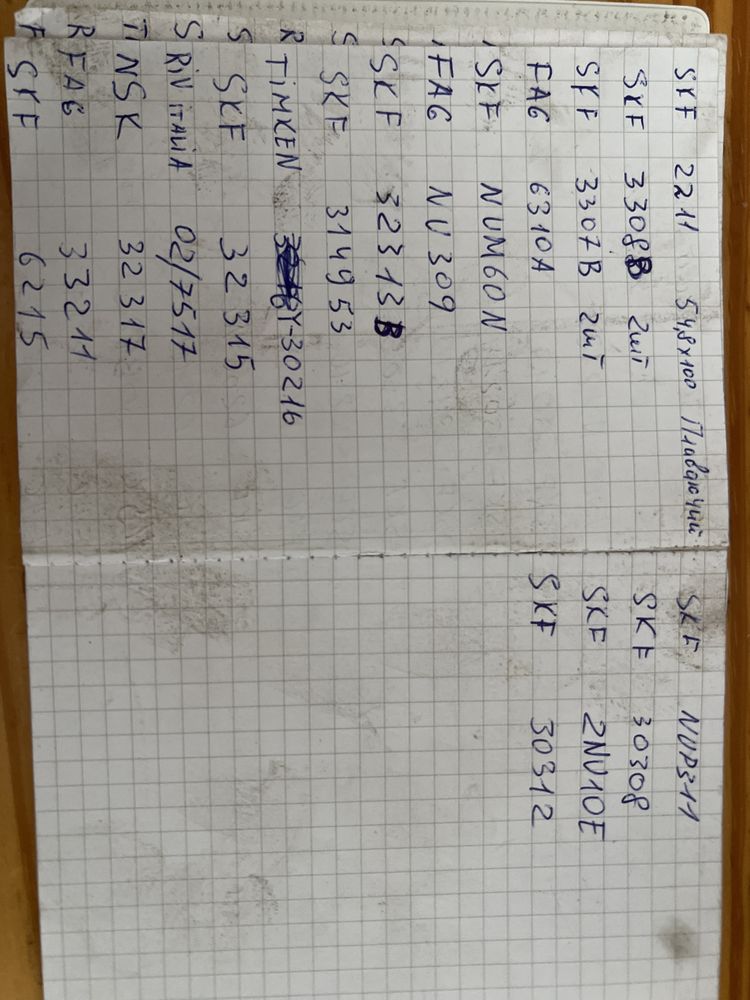 SKF 2211 54,8x100 Плавающий
SKF 3308B 2шт
SKF 3307B 2шт
FAG 6310A
SKF NUM60N
FAG NU309
SKF 32313B
SKF 314953
TIMKEN Y-30216
SKF 32315
RIV ITALIA 02/7517
NSK 32317
FAG 33211
SKF 6215
SKF NUP311
SKF 30308
SKF 2NU10E
SKF 30312